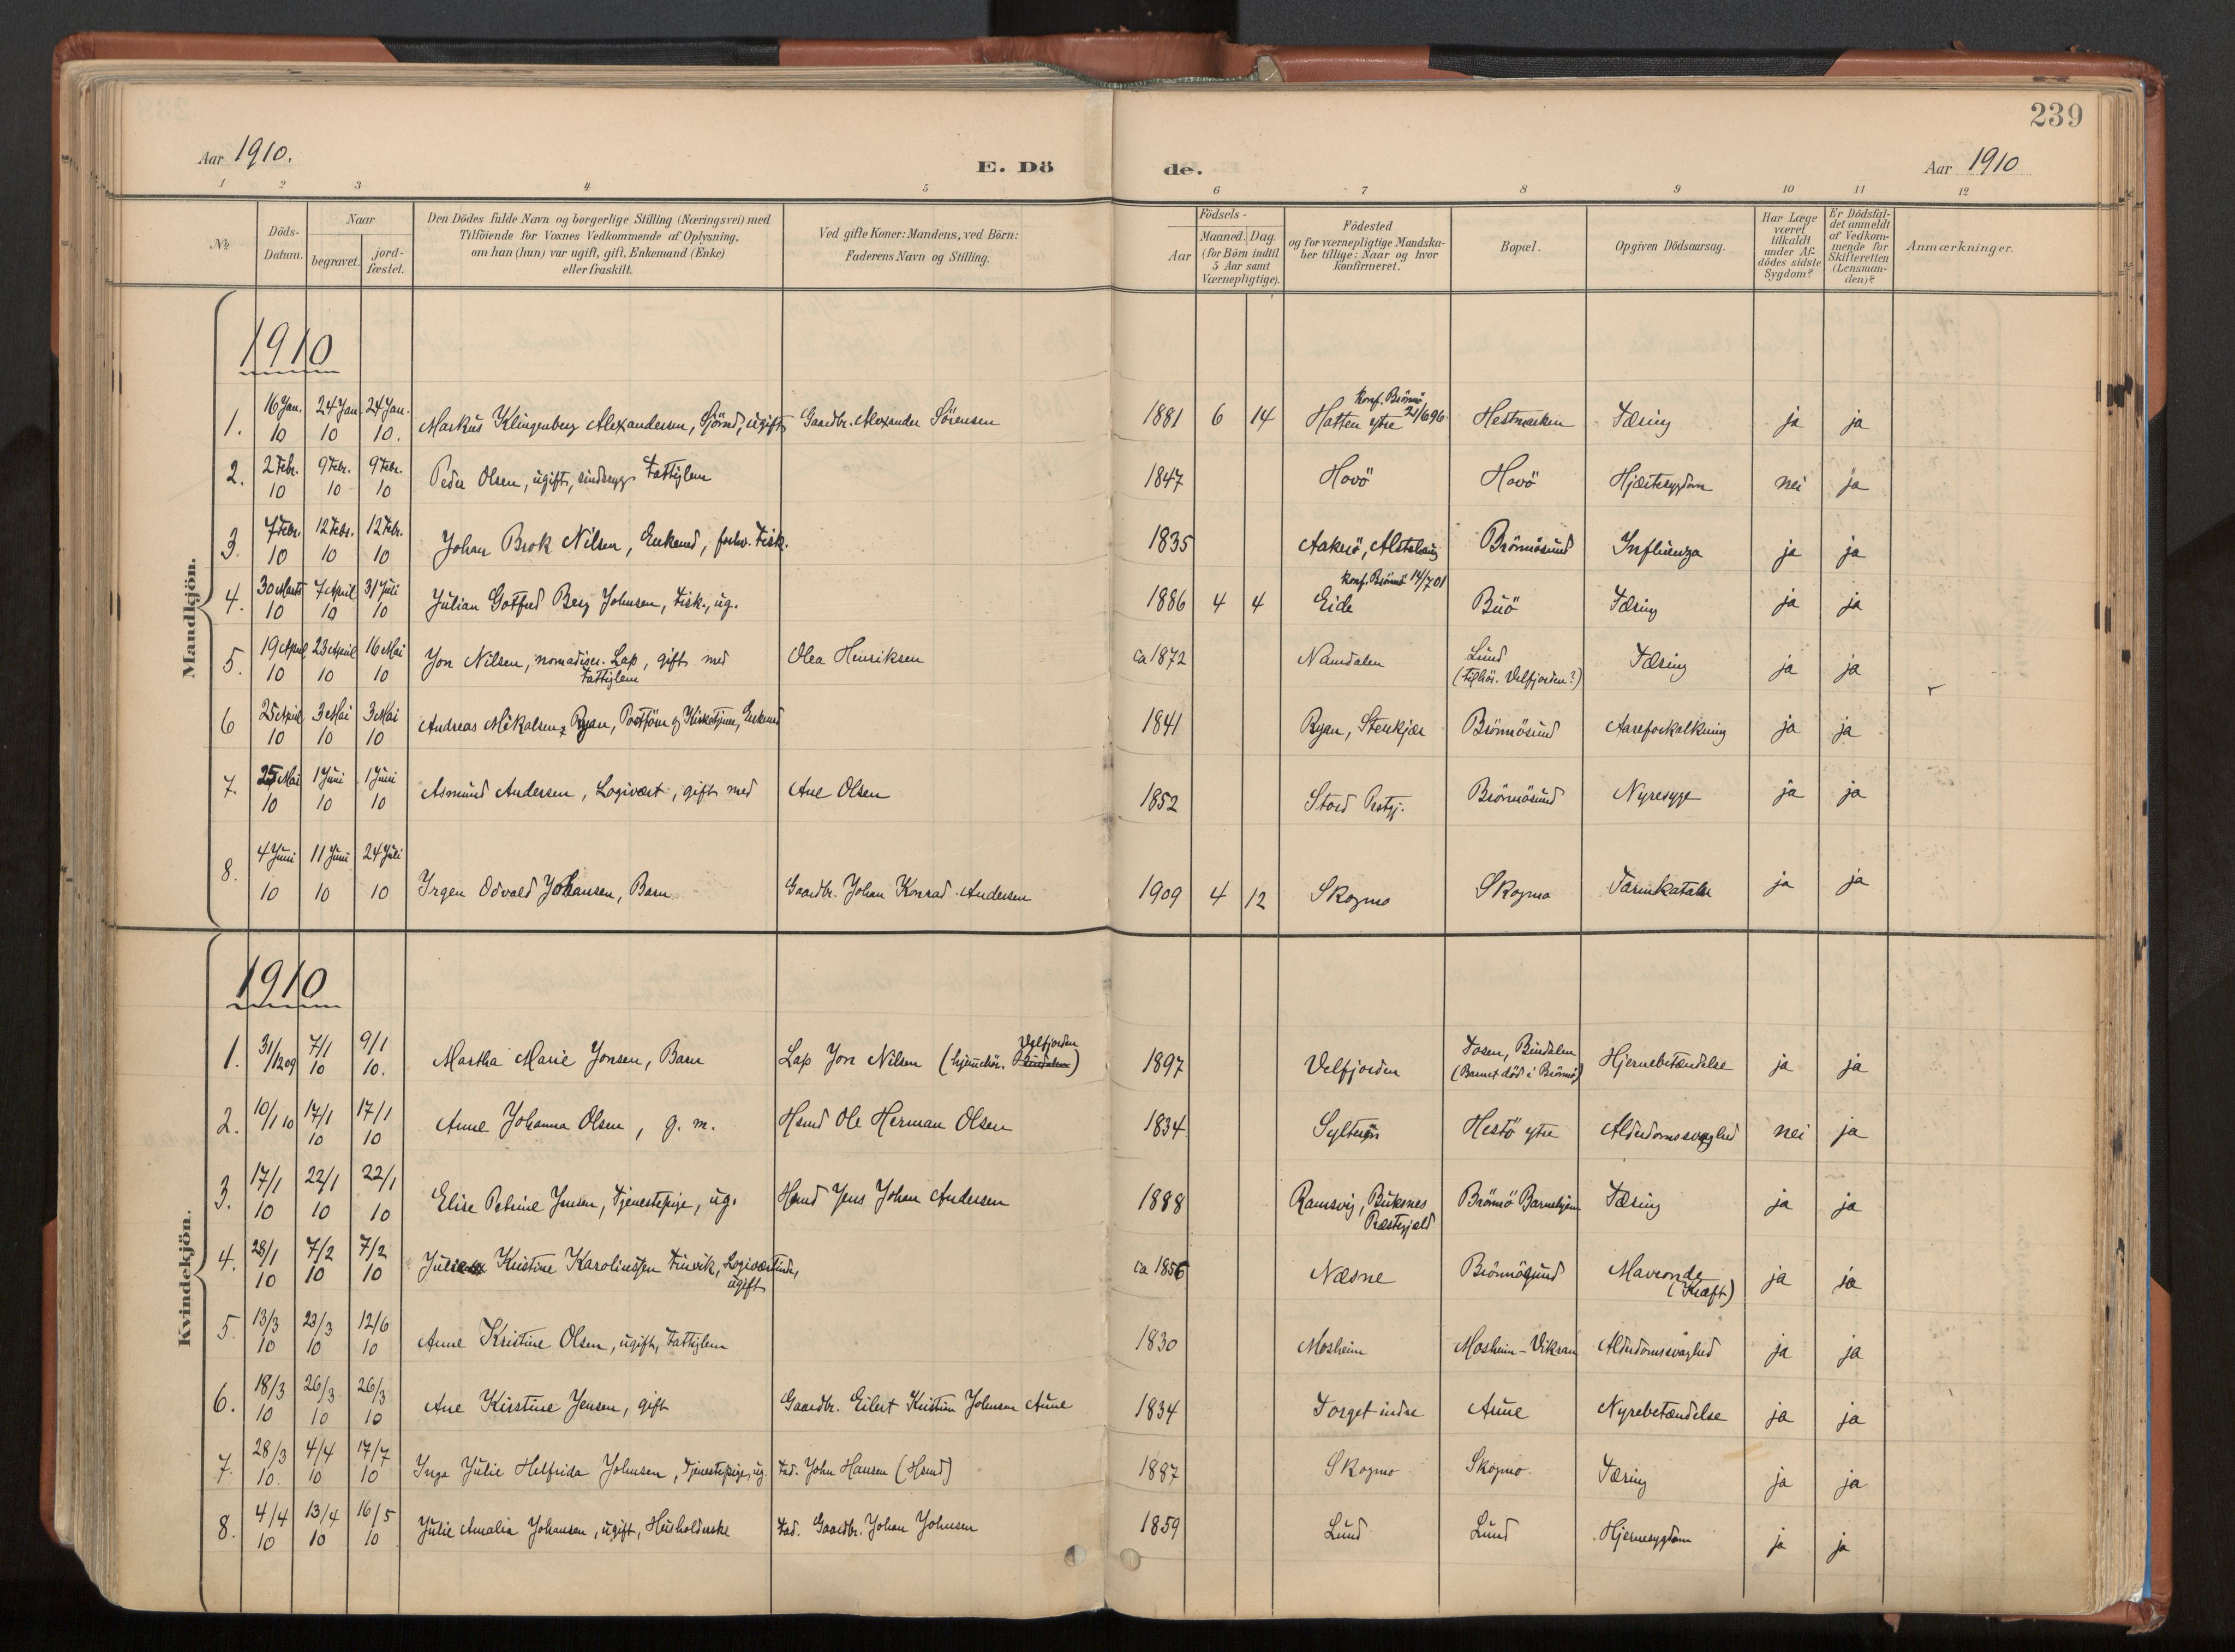 239
Aar 1910.
E. Döde.
Aar 1910
1 2 3 4 5 6 7 8 9 10 11 12
No.
Döds-Datum.
Naar
begravet.
jord-fæstet.
Den Dödes fulde Navn og borgerlige Stilling (Næringsvei) med
Tilföiende for Voxnes Vedkommende af Oplysning,
om han (hun) var ugift, gift, Enkemand (Enke)
eller fraskilt.
Ved gifte Koner: Mandens, ved Börn:
Faderens Navn og Stilling.
Födsels-
Aar
Maaned. Dag.
(for Börn indtil
5 Aar samt
Værnepligtige).
Födested
og for værnepligtige Mandska-
ber tillige: Naar og hvor
konfirmeret.
Bopæl.
Opgiven Dödsaarsag.
Har Læge
været
tilkaldt
under Af-
dödes sidste
Sygdom?
Er Dödsfal-
det anmeldt
af Vedkom-
mende for
Skifteretten
(Lensman-
den)?
Anmærkninger.
Mandkjön.
1910
1. 16 Jan. 10 24 Jan. 10 24 Jan. 10. Markus Klingenberg Alexandersen, Sjömd, ugift Gaardbr. Alexander Sörensen 1881 6 14 Hatten ytre konf. Brönnö 21/6 96. Hestmarken Tæring ja ja
2. 2 Febr. 10 9 Febr. 10 9 Febr. 10 Peder Olsen, ugift, sindssyg Fattiglem 1847 Hovö Hovö Hjertesygdom nei ja
3. 7 Febr. 10 12 Febr. 10 12 Febr. 10 Johan Brok Nilsen, Enkemd, forhv. Fisk. 1835 Aakerö, Alstahaug Brönnösund Influenza ja ja
4. 30 Marts 10 7 April 10 31 Juli 10 Julian Gotfred Berg Johnsen, Fisk., ug. 1886 4 4 Eide konf. Brönnö 14/7 01 Buö Tæring ja ja
5. 19 April 10 23 April 10 16 Mai 10 Jon Nilsen, nomadiser. Lap, gift med Fattiglem Olea Henriksen ca 1872 Namdalen Lund (tilhör. Velfjorden?) Tæring ja ja
6 25 April 10 3 Mai 10 3 Mai 10 Andreas Mikalsen Ryan, Postförer og Kirketjener, Enkemd 1841 Ryan, Stenkjær Brönnösund Aareforkalkning ja ja
7. 25 Mai 10 1 Juni 10 1 Juni 10 Asmund Andersen, Logivært, gift med Ane Olsen 1852 Stord Prstgj. Brönnösund Nyresyge ja ja
8. 4 Juni 10 11 Juni 10 24 Juli 10 Irgen Odvald Johansen, Barn Gaardbr. Johan Konrad Andersen 1909 4 12 Skogmo Skogmo Tarmkatarr ja ja
Kvindekjön.
1910
1. 31/12 09 7/1 10 9/1 10. Martha Marie Jonsen, Barn Lap Jon Nilsen (hjemhör. Bindalen Velfjorden) 1897 Velfjorden Tosen, Bindalen (Barnet död i Brönnö) Hjernebetændelse ja ja
2. 10/1 10 17/1 10 17/1 10 Anne Johanna Olsen, g. m. Hsmd Ole Herman Olsen 1834 Sylteren Hestö ytre Alderdomssvaghed nei ja
3. 17/1 10 22/1 10 22/1 10 Elise Petrine Jensen, Tjenestepige, ug. Hsmd Jens Johan Andersen 1888 Ramsvig, Buksnes Præstegjæld Brönnö Barnehjem Tæring ja ja
4. 28/1 10 7/2 10 7/2 10 Julie Kristine Karoliussen Finvik, Logivertinde, ugift ca 1856 Næsne Brönnösund Maveonde (Kræft) ja ja
5. 13/3 10 23/3 10 12/6 10 Anne Kristine Olsen, ugift, Fattiglem 1830 Mosheim Mosheim-Vikran Alderdomssvaghed ja ja
6. 18/3 10 26/3 10 26/3 10 Ane Kirstine Jensen, gift Gaardbr. Eilert Kristian Johnsen Aune 1834 Torget indre Aune Nyrebetændelse ja ja
7. 28/3 10. 4/4 10 17/7 10 Inga Julie Helfrida Johnsen, Tjenestepige, ug. Fad. John Hansen (Hsmd) 1887 Skogmo Skogmo Tæring ja ja
8. 4/4 10 13/4 10 16/5 10 Julie Amalia Johansen, ugift, Husholderske Fad. Gaardbr. Johan Johnsen 1859 Lund Lund Hjernesygdom ja ja